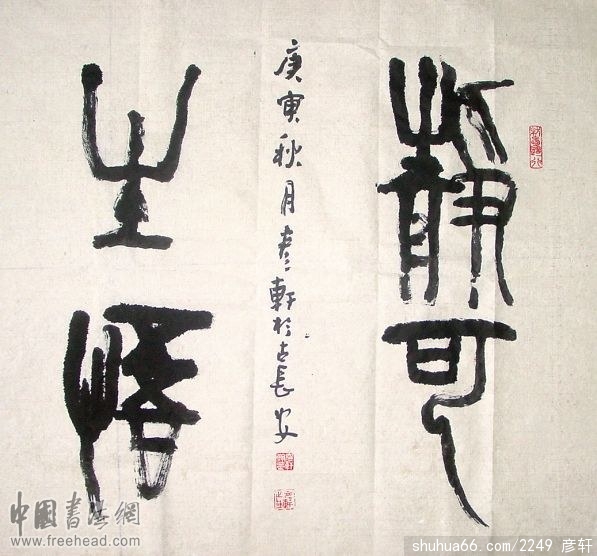 靜可
庚寅秋月彦軒於古長安
生悟
中國書法網
www.freehead.com
shuhua66.com/2249 彦轩